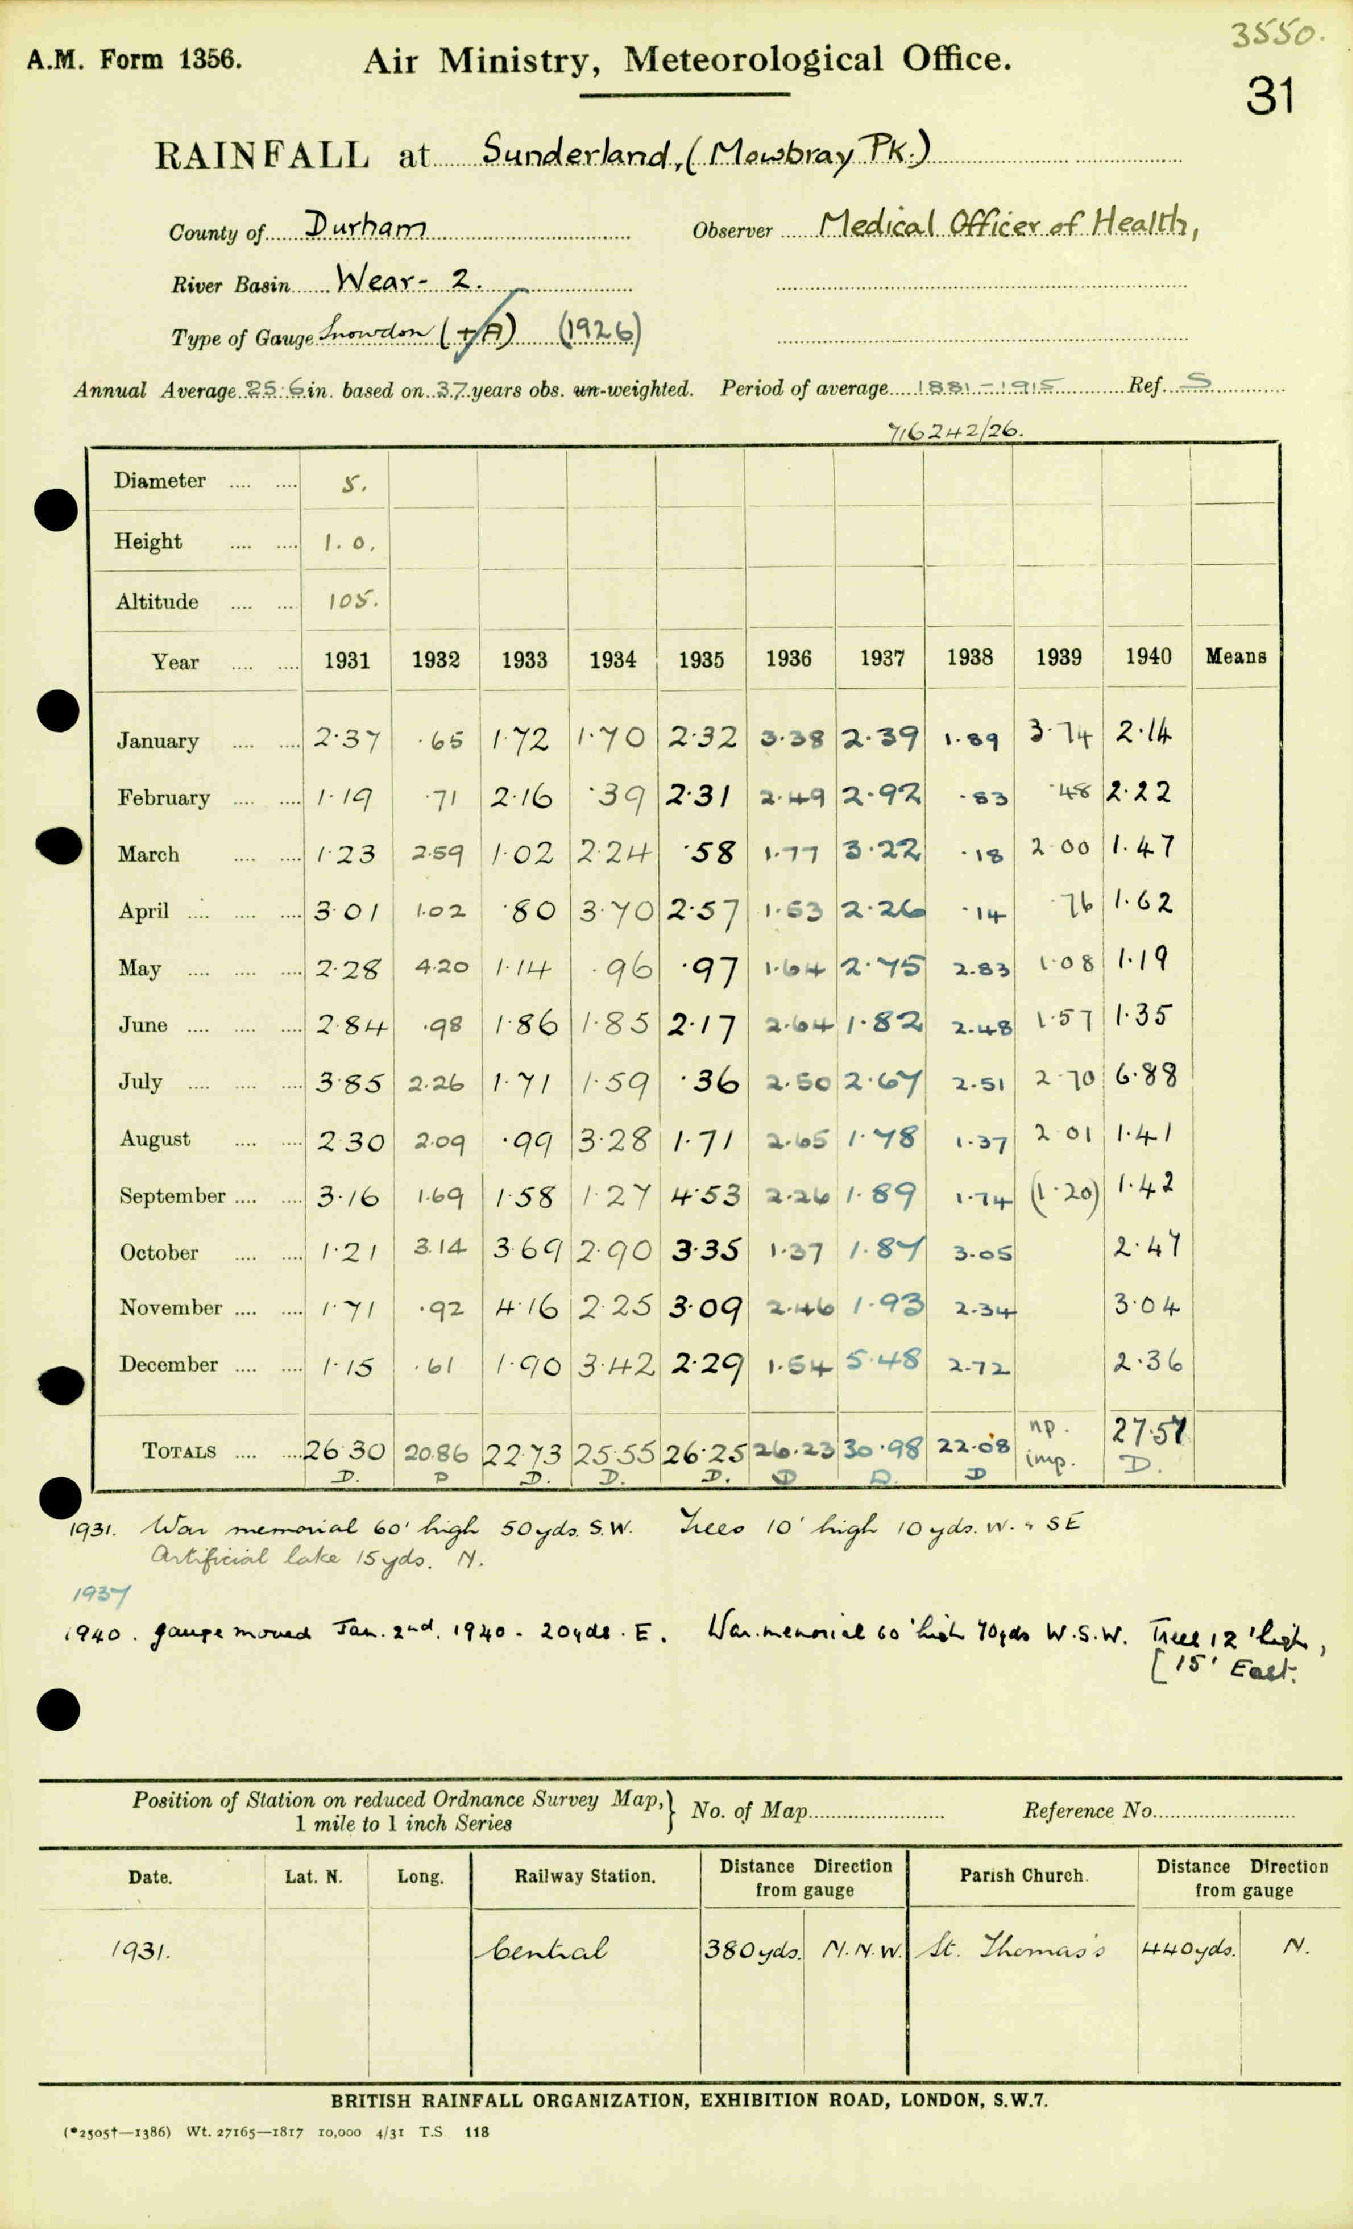 3550.
A.M. Form 1356. Air Ministry, Meteorological Office.
31
RAINFALL at Sunderland, (Mowbray Pk.)
County of Durham Observer Medical Officer of Health,
River Basin Wear - 2.
Type of Gauge Snowdon (+A) (1926)
Annual Average 25.6 in. based on 37 years obs. un-weighted. Period of average 1881-1915 Ref. S
716242/26.
Diameter .... .... 5.
Height .... .... 1.0.
Altitude .... .... 105.
Year .... .... 1931 1932 1933 1934 1935 1936 1937 1938 1939 1940 Means
January .... .... 2.37 .65 1.72 1.70 2.32 3.38 2.39 1.89 3.74 2.14
February .... .... 1.19 .71 2.16 .39 2.31 2.49 2.92 .83 .48 2.22
March .... .... 1.23 2.59 1.02 2.24 .58 1.77 3.22 .18 2.00 1.47
April .... .... .... 3.01 1.02 .80 3.70 2.57 1.53 2.26 .14 .76 1.62
May .... .... .... 2.28 4.20 1.14 .96 .97 1.64 2.75 2.83 1.08 1.19
June .... .... .... 2.84 .98 1.86 1.85 2.17 2.64 1.82 2.48 1.57 1.35
July .... .... .... 3.85 2.26 1.71 1.59 .36 2.50 2.67 2.51 2.70 6.88
August .... .... 2.30 2.09 .99 3.28 1.71 2.65 1.78 1.37 2.01 1.41
September .... .... 3.16 1.69 1.58 1.27 4.53 2.26 1.89 1.74 (1.20) 1.42
October .... .... 1.21 3.14 3.69 2.90 3.35 1.37 1.87 3.05 2.47
November .... .... 1.71 .92 4.16 2.25 3.09 2.46 1.93 2.34 3.04
December .... .... 1.15 .61 1.90 3.42 2.29 1.54 5.48 2.72 2.36
TOTALS .... .... 26.30 20.86 22.73 25.55 26.25 26.23 30.98 22.08 np. imp. 27.57
D. D D. D. D. D D. D D.
1931. War memorial 60' high 50yds. S.W. Trees 10' high 10yds. W. & SE
Artificial lake 15yds. N.
1937
1940. gauge moved Jan. 2nd. 1940 - 20yds. E. War memorial 60' high 70yds W.S.W. Tree 12' high,
[15' East.
Position of Station on reduced Ordnance Survey Map,} No. of Map Reference No.
1 mile to 1 inch Series
Date. Lat. N. Long. Railway Station. Distance Direction from gauge Parish Church. Distance Direction from gauge
1931. Central 380yds. N.N.W. St. Thomas's 440yds. N.
BRITISH RAINFALL ORGANIZATION, EXHIBITION ROAD, LONDON, S.W.7.
(*2505†—1386) Wt. 27165—1817 10,000 4/31 T.S 118